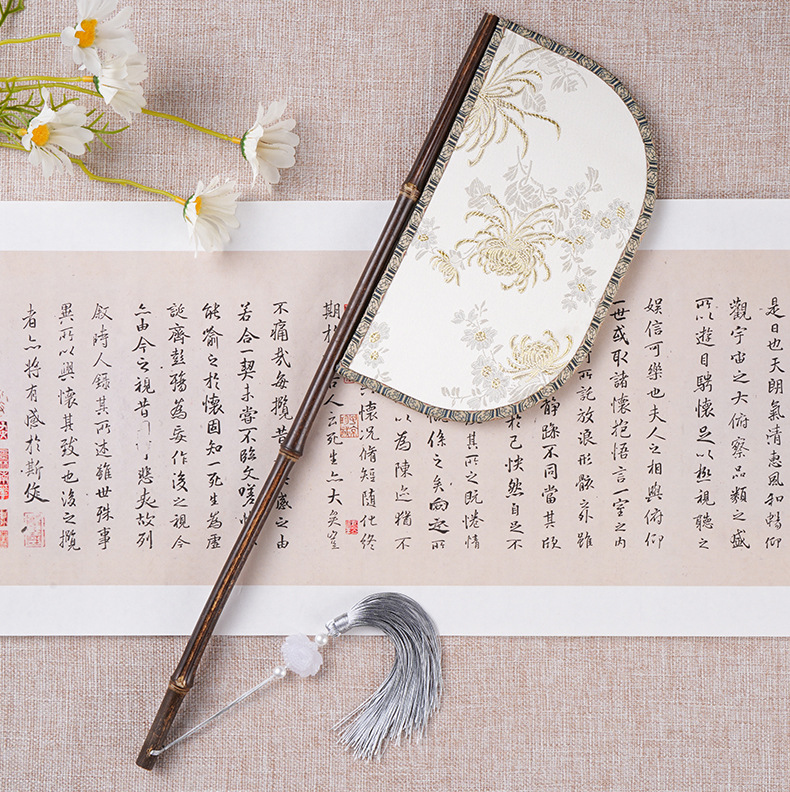 是日也天朗氣清惠風和暢仰
觀宇宙之大俯察品類之盛
所以遊目騁懷足以極視聽之
娛信可樂也夫人之相與俯仰
一世或取諸懷抱悟言一室之內
所託放浪形骸之外雖
靜躁不同當其欣
於己怏然自足不
其所之既惓情
係之矣向之所
以為陳迹猶不
懷況脩短隨化終
期 古人云死生亦大矣豈
不痛哉每攬昔 感之由
若合一契未嘗不臨文嗟
能喻之於懷固知一死生為虛
誕齊彭殤為妄作後之視今
亦由今之視昔 悲夫故列
敘時人錄其所述雖世殊事
異所以興懷其致一也後之攬
者亦將有感於斯文